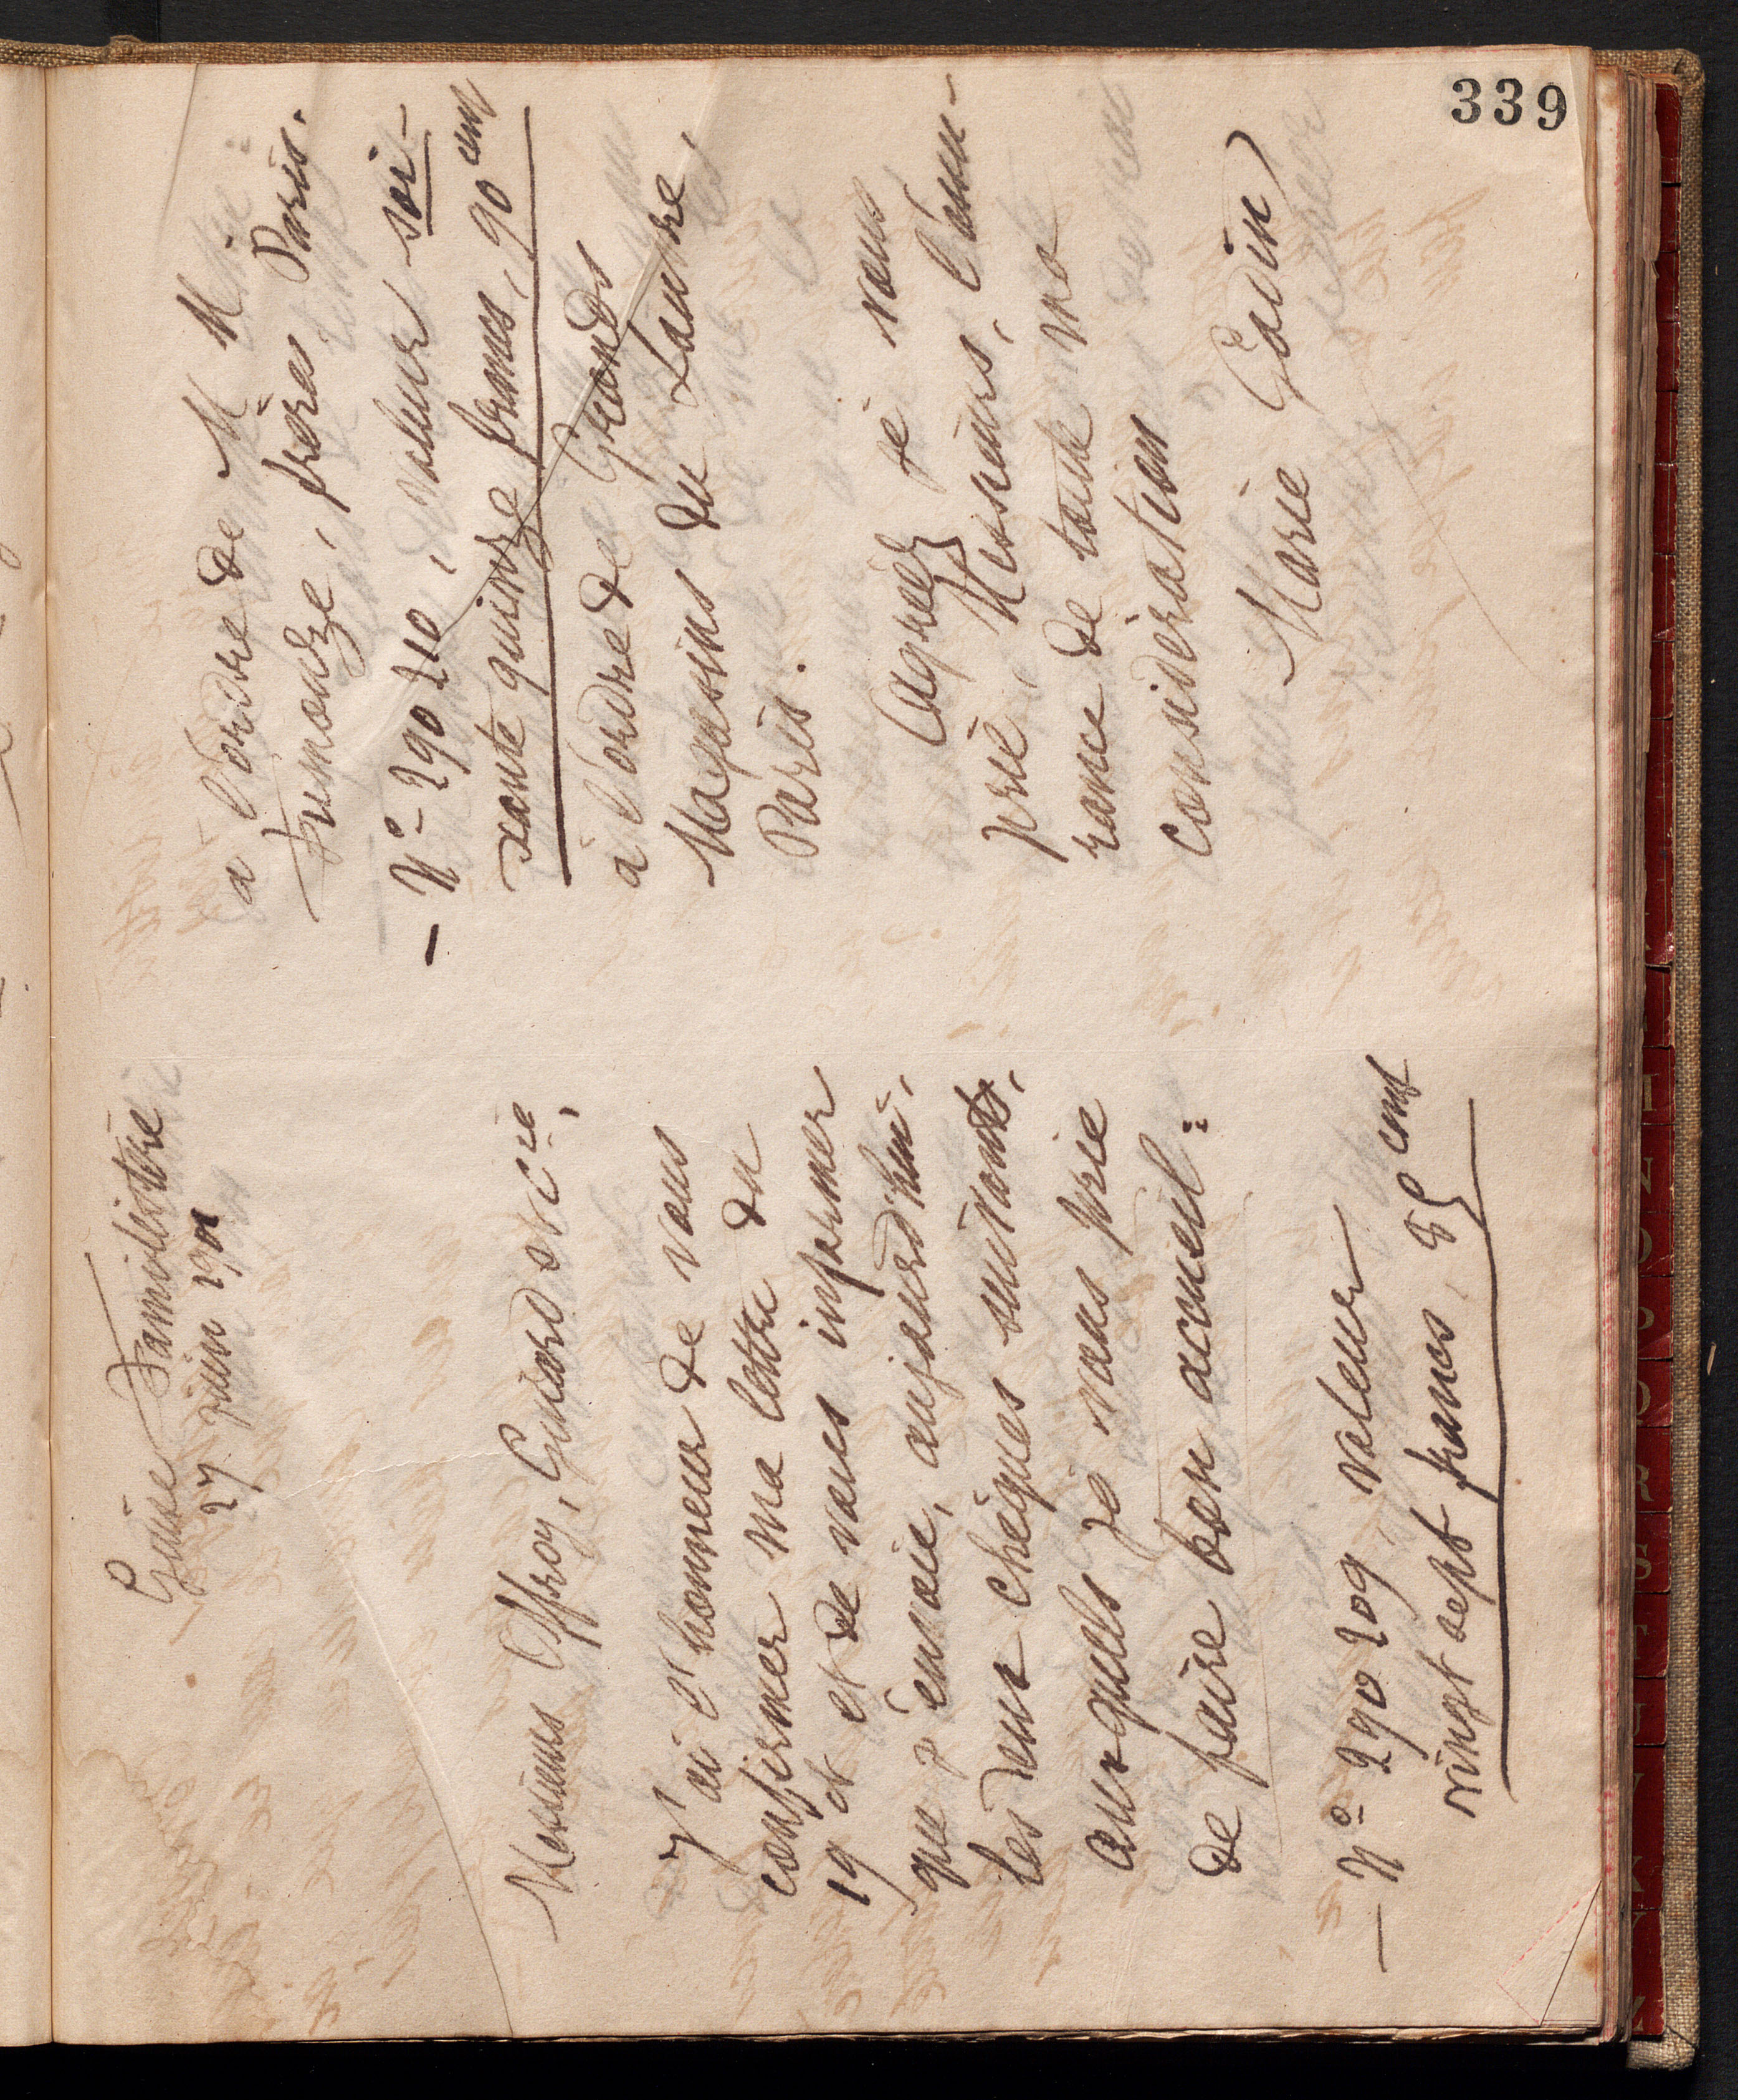 339
Guise Familistère
27 juin 1901
Messieurs Offroy, Guiard et Cie,
J'ai l'honneur de vous
confirmer ma lettre du
19 ct et de vous informer
que j'envoie, aujourd'hui,
les deux chèques suivants,
auxquels je vous prie
de faire bon accueil :
— No 290 209, valeur
vingt sept francs, 85 cent
à l'ordre de M. M
Fumouze, frères, Paris.
— No 290 210, valeur soi-
xante quinze francs, 90 cent
à l'ordre de Grands
Magasins du Louvre,
Paris.
Agréez je vous
prie, Messieurs, l'assu-
rance de toute ma
considération
Marie Godin